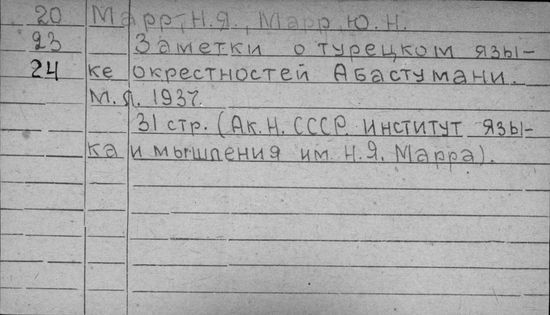 20 Марр, Н.Я., Марр, Ю.Н.
23 Заметки о турецком язы-
24 ке окрестностей Абастумани.
М.Л. 1937.
31 стр. (Ак. Н. СССР. Институт язы-
ка и мышления им. Н.Я. Марра).